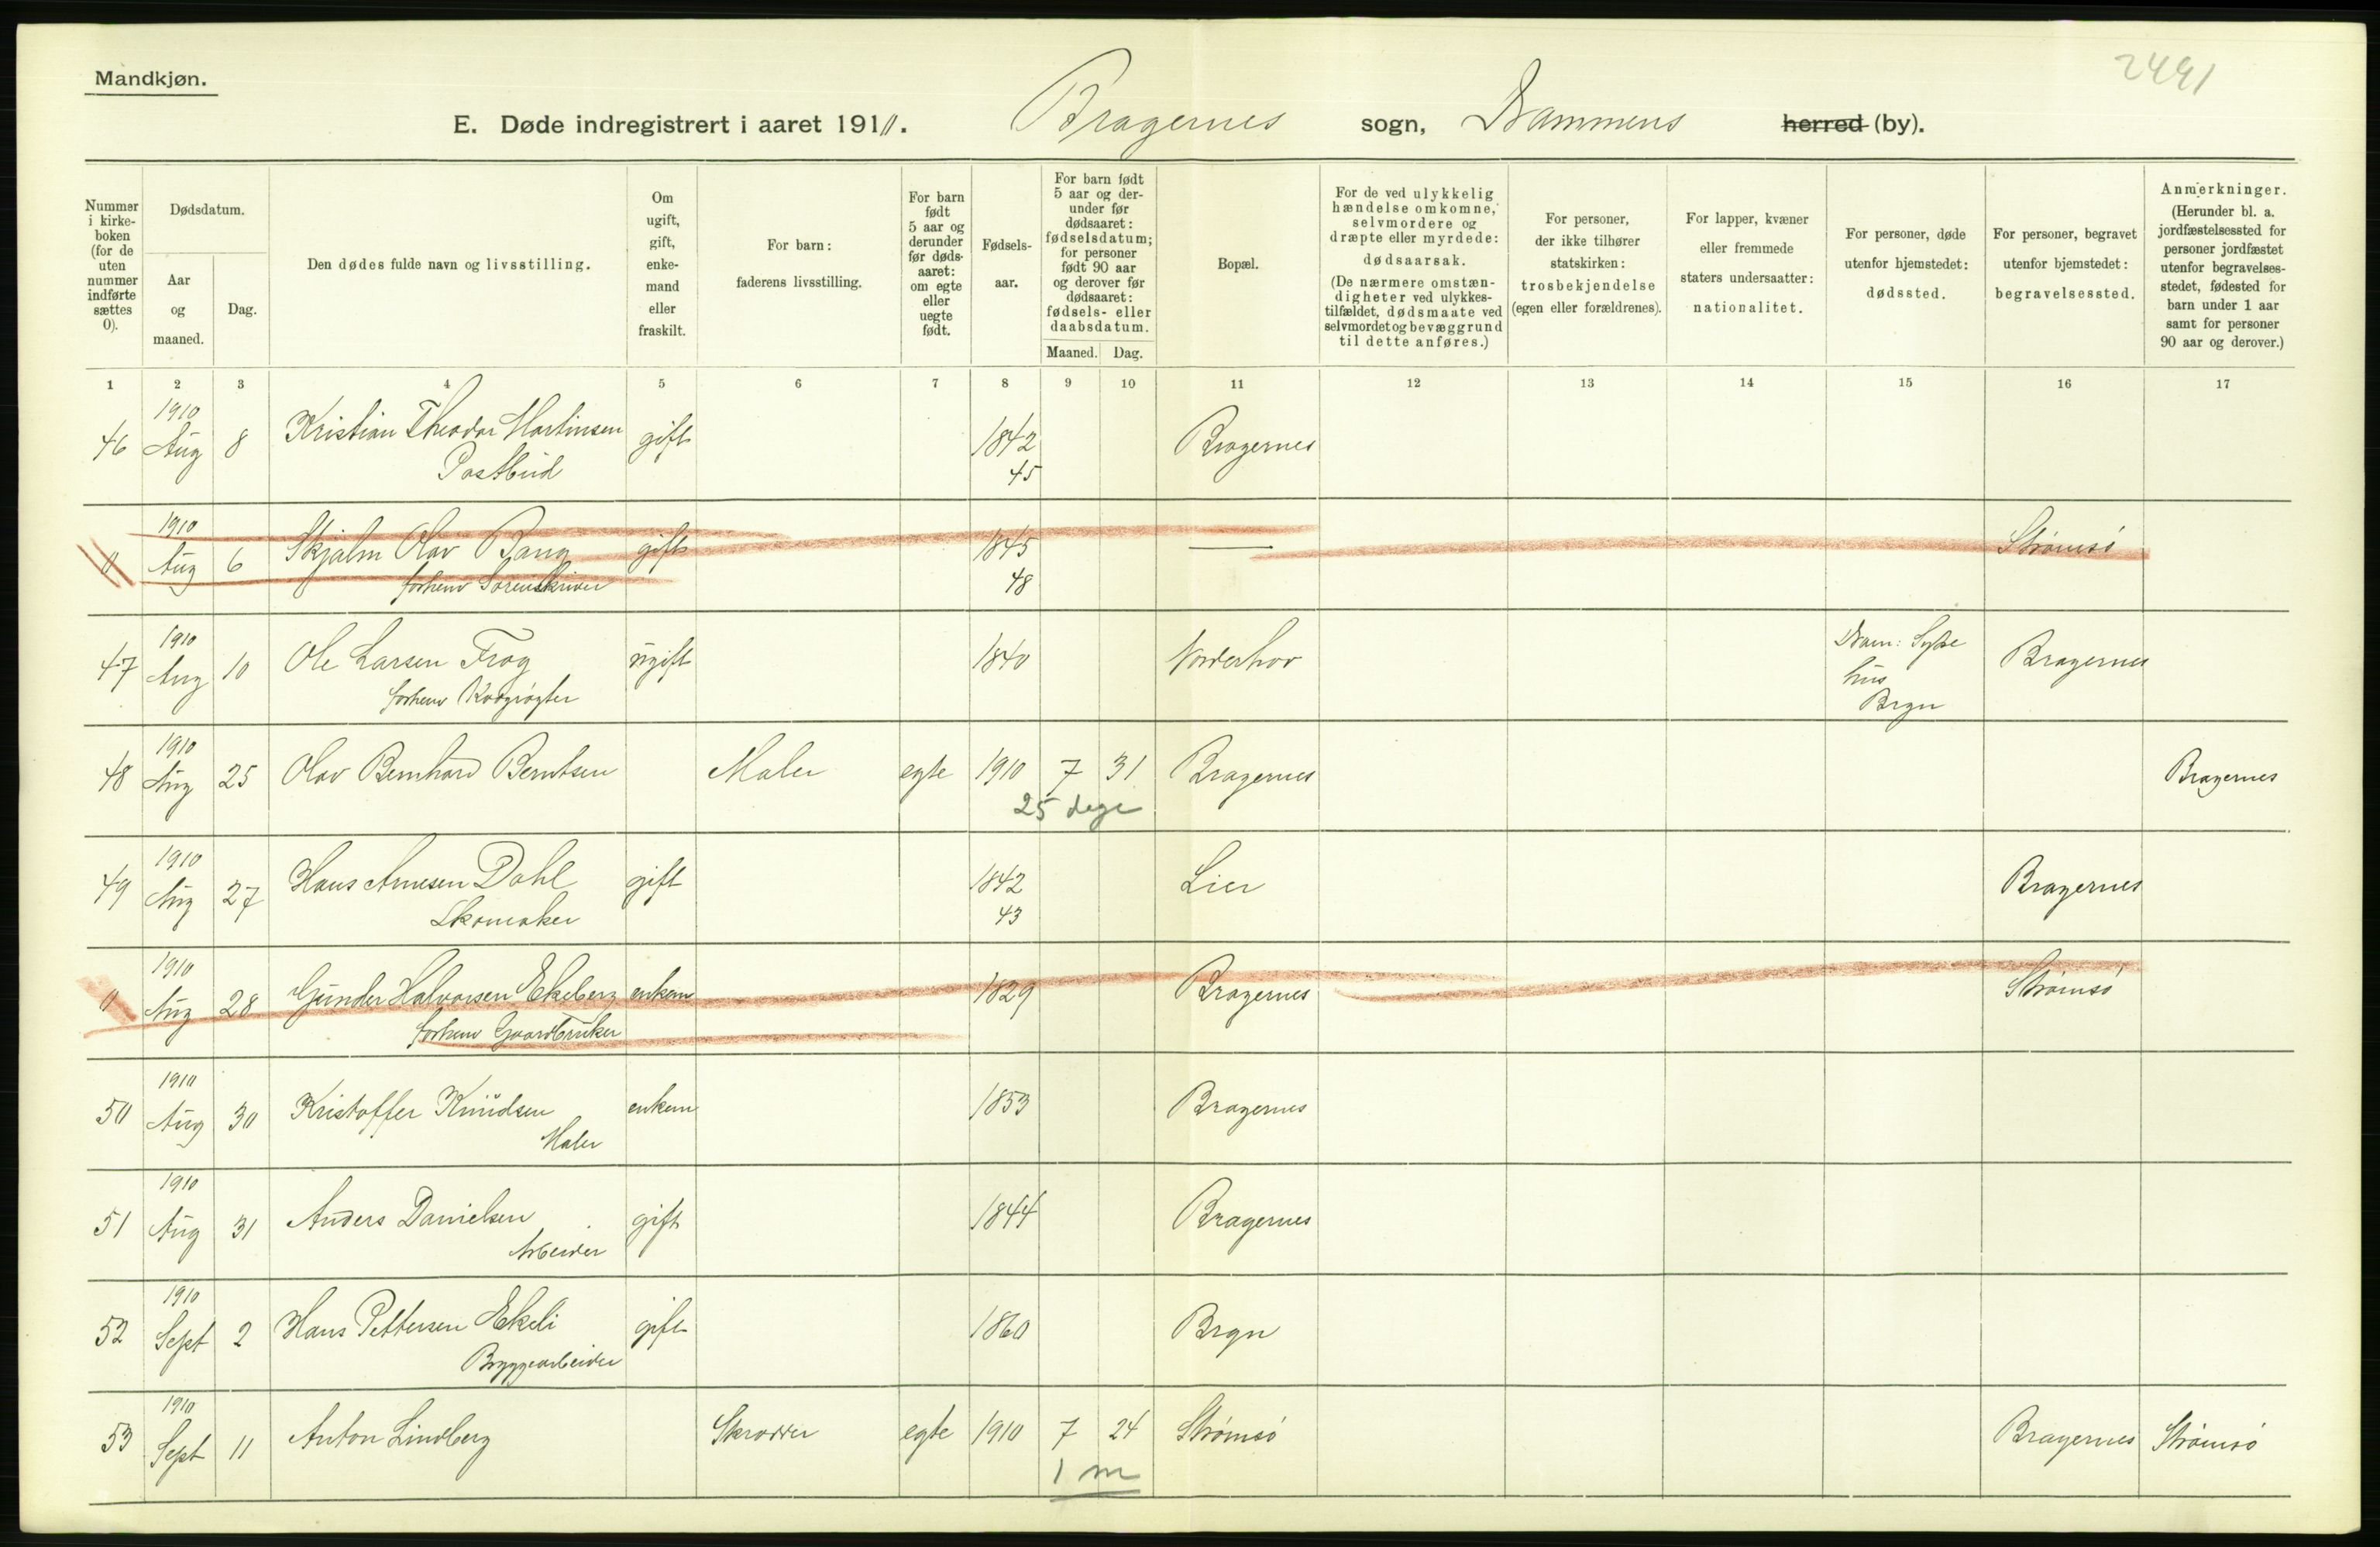 Mandkjøn.
2491
E. Døde indregistrert i aaret 1910. Bragernes sogn, Drammens herred (by).
Nummer i kirke-boken (for de uten nummer indførte sættes 0).
Dødsdatum.
Aar og maaned.
Dag.
Den dødes fulde navn og livsstilling.
Om ugift, gift, enke-mand eller fraskilt.
For barn: faderens livsstilling.
For barn født 5 aar og derunder før døds-aaret: om egte eller uegte født.
Fødsels-aar.
For barn født 5 aar og der-under før dødsaaret: fødselsdatum; for personer født 90 aar og derover før dødsaaret: fødsels- eller daabsdatum.
Maaned. Dag.
Bopæl.
For de ved ulykkelig hændelse omkomne, selvmordere og dræpte eller myrdede: dødsaarsak. (De nærmere omstæn-digheter ved ulykkes-tilfældet, dødsmaate ved selvmordet og bevæggrund til dette anføres.)
For personer, der ikke tilhører statskirken: trosbekjendelse (egen eller forældrenes).
For lapper, kvæner eller fremmede staters undersaatter: nationalitet.
For personer, døde utenfor hjemstedet: dødssted.
For personer, begravet utenfor hjemstedet: begravelsessted.
Anmerkninger. (Herunder bl. a. jordfæstelsessted for personer jordfæstet utenfor begravelses-stedet, fødested for barn under 1 aar samt for personer 90 aar og derover.)
1 2 3 4 5 6 7 8 9 10 11 12 13 14 15 16 17
1910
46 Aug 8 Kristian Theodor Martinsen gift 1842 Bragernes
Postbud 45
1910
0 Aug 6 Skjalm Olav Bang gift 1845 — Strømsö
forhenv Sorenskriver 48
1910
47 Aug 10 Ole Larsen Frog ugift 1840 Norderhov Dram: Syke Bragernes
hus
forhenv Brgn
1910
48 Aug 25 Olav Bernhard Berntsen Maler egte 1910 7 31 Bragernes Bragernes
25 dage
1910
49 Aug 27 Hans Arnesen Dahl gift 1842 Lier Bragernes
Skomaker 43
1910
0 Aug 28 Gunder Halvorsen Ekeberg enkem 1829 Bragernes Strømsö
forhenv Gaardbruker
1910
50 Aug 30 Kristoffer Knudsen enkem 1853 Bragernes
Maler
1910
51 Aug 31 Anders Danielsen gift 1844 Bragernes
Arbeider
1910
52 Sept 2 Hans Pettersen Ekeli gift 1860 Brgn
Bryggearbeider
1910
53 Sept 11 Anton Lindberg Skrædder egte 1910 7 24 Strømsö Bragernes Strømsö
1 m